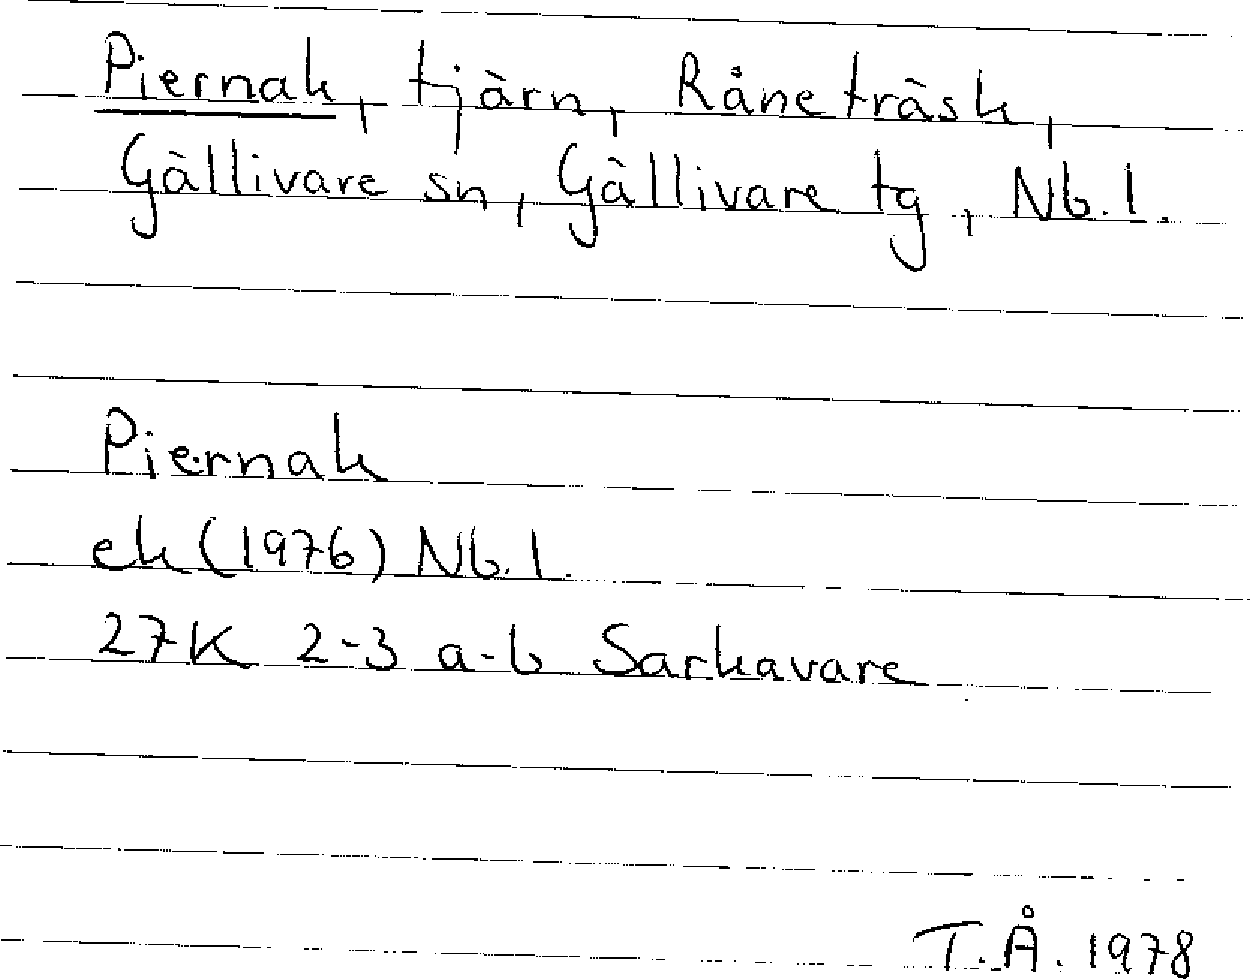 Piernak, tjärn, Råneträsk,
Gällivare sn, Gällivare tg, Nb. l.
Piernak
ek (1976) Nb. l.
27K 2-3 a-b Sarkavare
T.Å. 1978